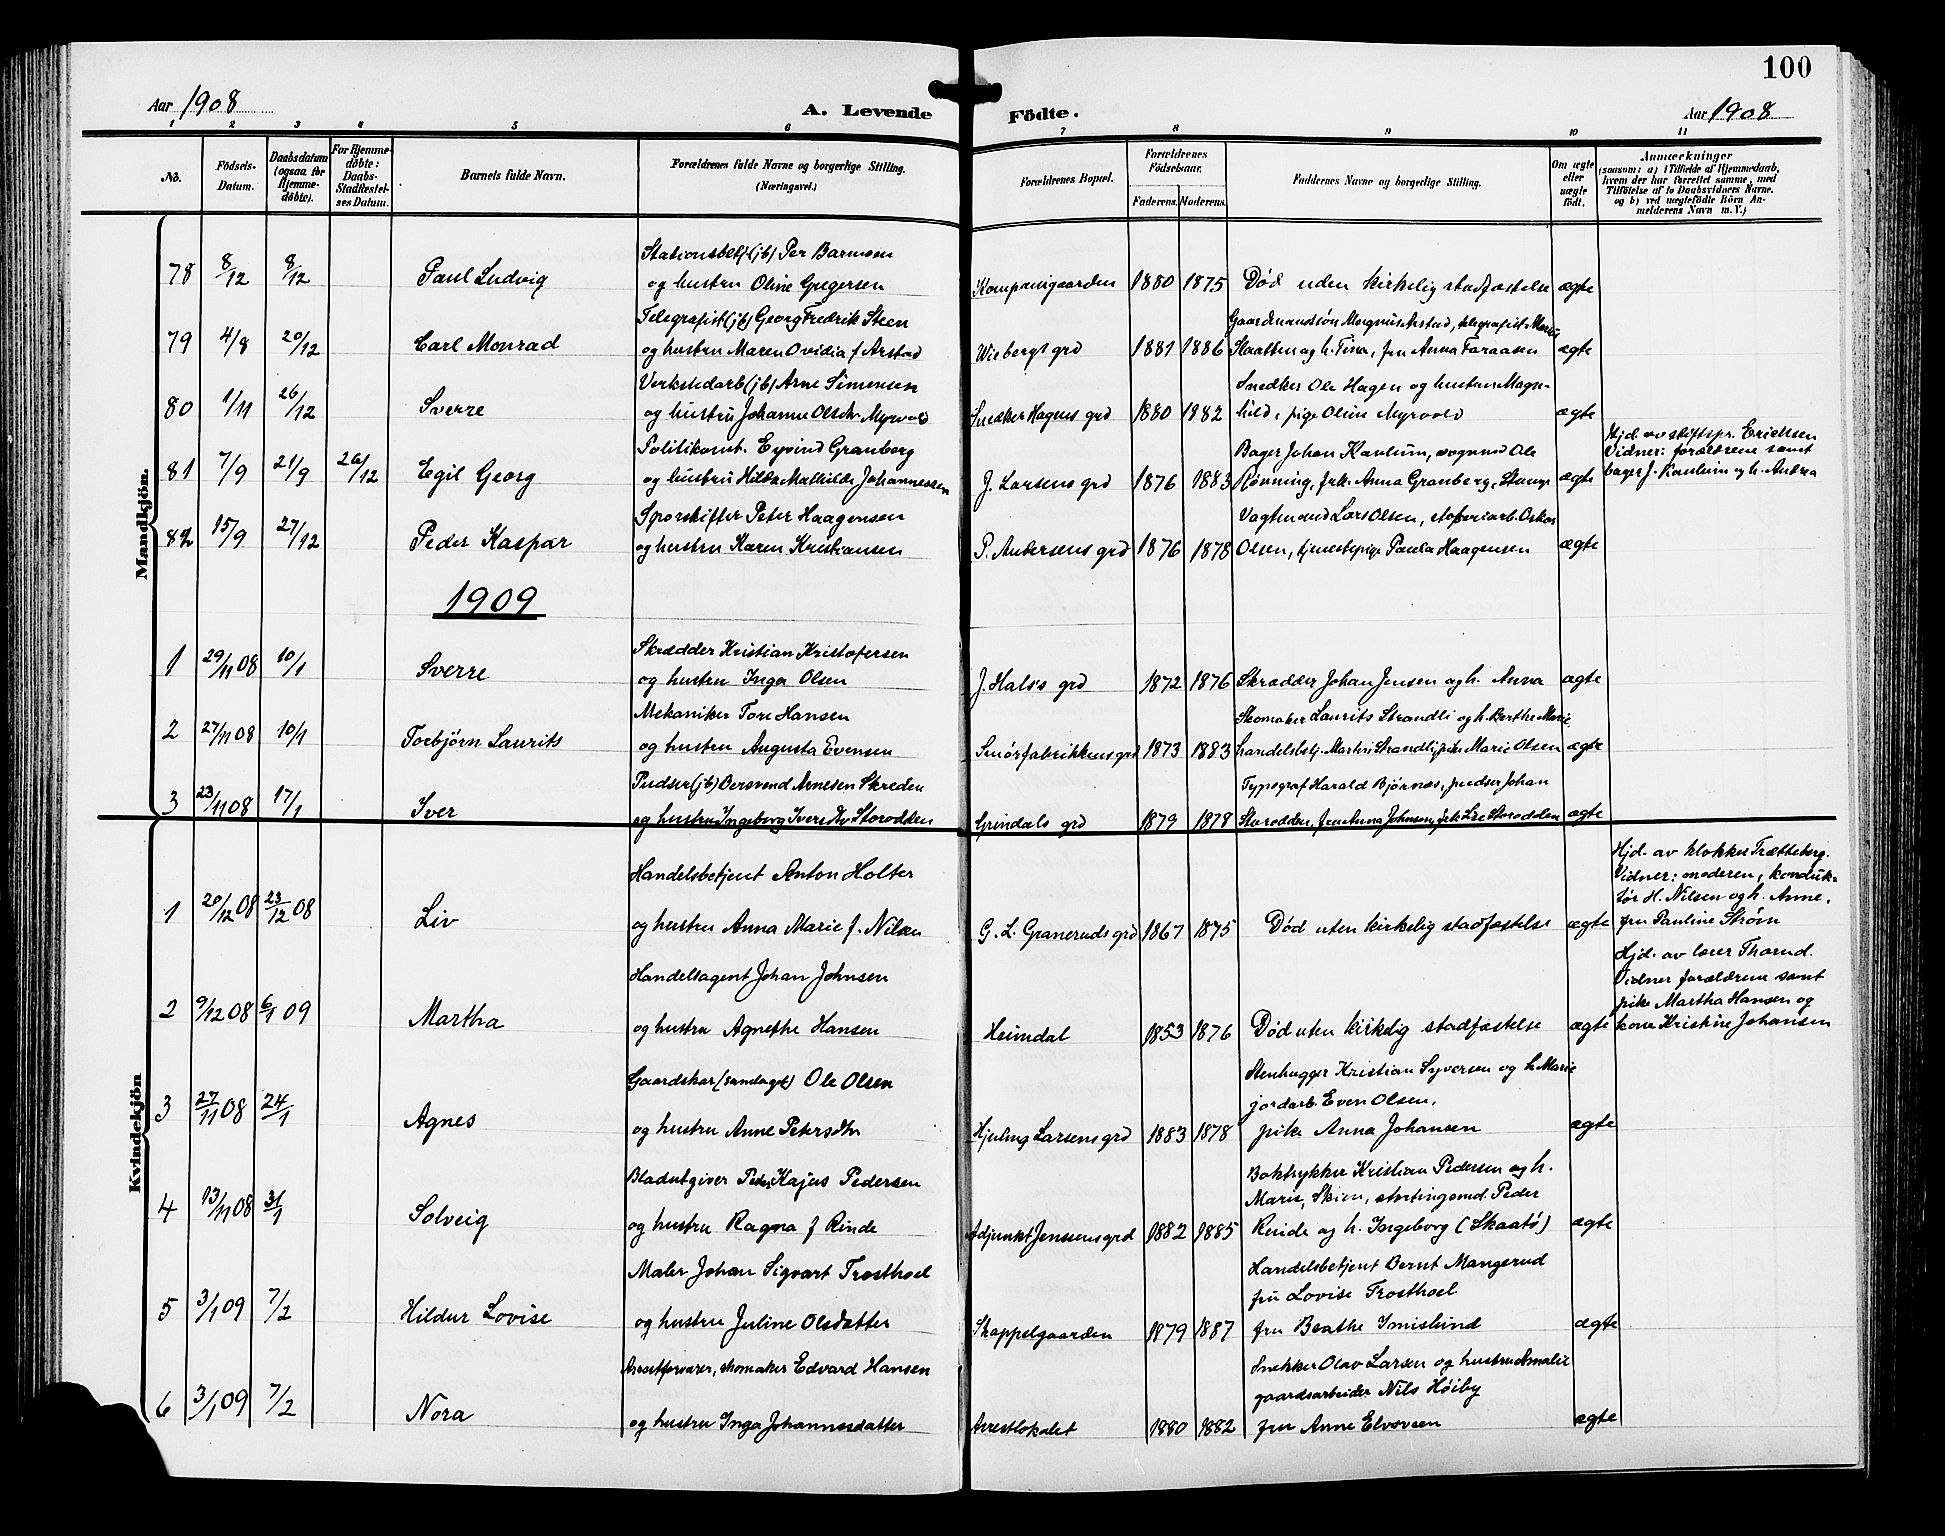 100
Aar 1908
A. Levende Födte.
Aar 1908
1 2 3 4 5 6 7 8 9 10 11
No.
Födsels-Datum.
Daabsdatum (ogsaa for Hjemme-döbte).
For Hjemme-döbte: Daabs-Stadfæstel-ses Datum.
Barnets fulde Navn.
Forældrenes fulde Navne og borgerlige Stilling. (Næringsvei.)
Forældrenes Bopæl.
Forældrenes Födselsaar.
Faderens. Moderens.
Faddernes Navne og borgerlige Stilling.
Om ægte eller uægte födt.
Anmærkninger
(saasom: a) i Tilfælde af Hjemmedaab, hvem der har forrettet samme, med Tilföielse af to Daabsvidners Navne. og b) ved uægtefödte Börn An-melderens Navn m. V.)
Mandkjön.
Stationsbetj. (jb) Per Barmoen
78 8/12 8/12 Paul Ludvig og hustru Oline Gregersen Kompanigaarden 1880 1875 Död uden kirkelig stadfæstelse ægte
Telegrafist (jb) Georg Fredrik Steen Gaardmandssön Magnus Arstad, telegrafist Marie
79 4/8 20/12 Carl Monrad og hustru Maren Ovidia f. Arstad Wiebergs grd 1881 1886 Slaatten og h. Tina, fru Anna Faraasen ægte
Verkstedarb (jb) Arne Simensen Snedker Ole Hagen og hustru Magn-
80 1/11 26/12 Sverre og hustru Johanne Olsdtr Myrvold Snedker Hagens grd 1880 1882 hild, pige Oline Myrvold ægte
Politikonst. Eyvind Granberg Bager Johan Kaulum, vognmd Ole
Hjd. av stiftspr. Erichsen
Vidner: forældrene samt
81 7/9 21/9 26/12 Egil Georg og hustru Hilda Mathilde Johannessen J. Larsens grd 1876 1883 Rönning, frk. Anna Granberg, Stange ægte bager J. Kaulum og h. Andrea
Sporskifter Peter Haagensen Vagtmand Lars Olsen, stoperiarb. Oskar
82 15/9 27/12 Peder Kaspar og hustru Karen Kristiansen P. Andersens grd 1876 1878 Olsen, tjenestepige Paula Haagensen ægte
1909
Skrædder Kristian Kristofersen
1 29/11 08 10/1 Sverre og hustru Inga Olsen J. Hals's grd 1872 1876 Skrædder Johan Jensen og h. Anna ægte
Mekaniker Tore Hansen Skomaker Laurits Strandli og h. Berthe Marie
2 27/11 08 10/1 Torbjörn Laurits og hustru Augusta Evensen Smörfabrikkens grd 1873 1883 handelsbetj. Martin Strandli, frk Marie Olsen ægte
Pudser (jb) Bersvend Arnesen Skreden Typograf Harald Bjørnæs, pudser Johan
3 23/11 08 17/1 Iver og hustru Ingeborg Iversdtr Storodden Grindals grd 1879 1878 Storodden, fru Anna Johnsen, frk Lise Storodden ægte
Kvindekjön
Hjd. av klokker Trætteberg.
Handelsbetjent Anton Holter Vidner: moderen, konduk-
tør H. Nilsen og h. Anne,
1 20/12 08 23/12 08 Liv og hustru Anna Marie f. Nilsen G. L. Graneruds grd 1867 1875 Död uten kirkelig stadfæstelse ægte fru Pauline Strøm
Hjd. av lærer Thorud.
Handelsagent Johan Johnsen Vidner forældrene samt
pike Martha Hansen og
2 9/12 08 6/1 09 Martha og hustru Agnethe Hansen Heimdal 1853 1876 Död uten kirkelig stadfæstelse ægte kona Kristine Johansen
Gaardskar (sandaget) Ole Olsen Stenhugger Kristian Syversen og h Marie
jordarb. Even Olsen,
3 27/11 08 24/1 Agnes og hustru Anne Petersdtr Hjerling Larsens grd 1883 1878 pike Anna Johansen ægte
Bladutgiver Peder Kajus Pedersen Boktrykker Kristian Pedersen og h.
Marie, Skien, stortingsmd. Peder
4 13/11 08 31/1 Solveig og hustru Ragna f Rinde Adjunkt Jenssens grd 1882 1885 Rinde og h. Ingeborg (Skaatö) ægte
Maler Johan Sigvart Trosthoel Handelsbetjent Bernt Mangerud
fru Lovise Trosthoel
5 3/1 09 7/2 Hildur Lovise og hustru Juline Olsdatter Skappelgaarden 1879 1887 fru Beathe Imislund ægte
Arrestforvarer, skomaker Edvard Hansen Snekker Olav Larsen og hustru Amalie
gaardsarbeider Nils Höiby
6 3/1 09 7/2 Nora og hustru Inga Johannesdatter Arrestlokalet 1880 1882 fru Anne Elvsveen ægte